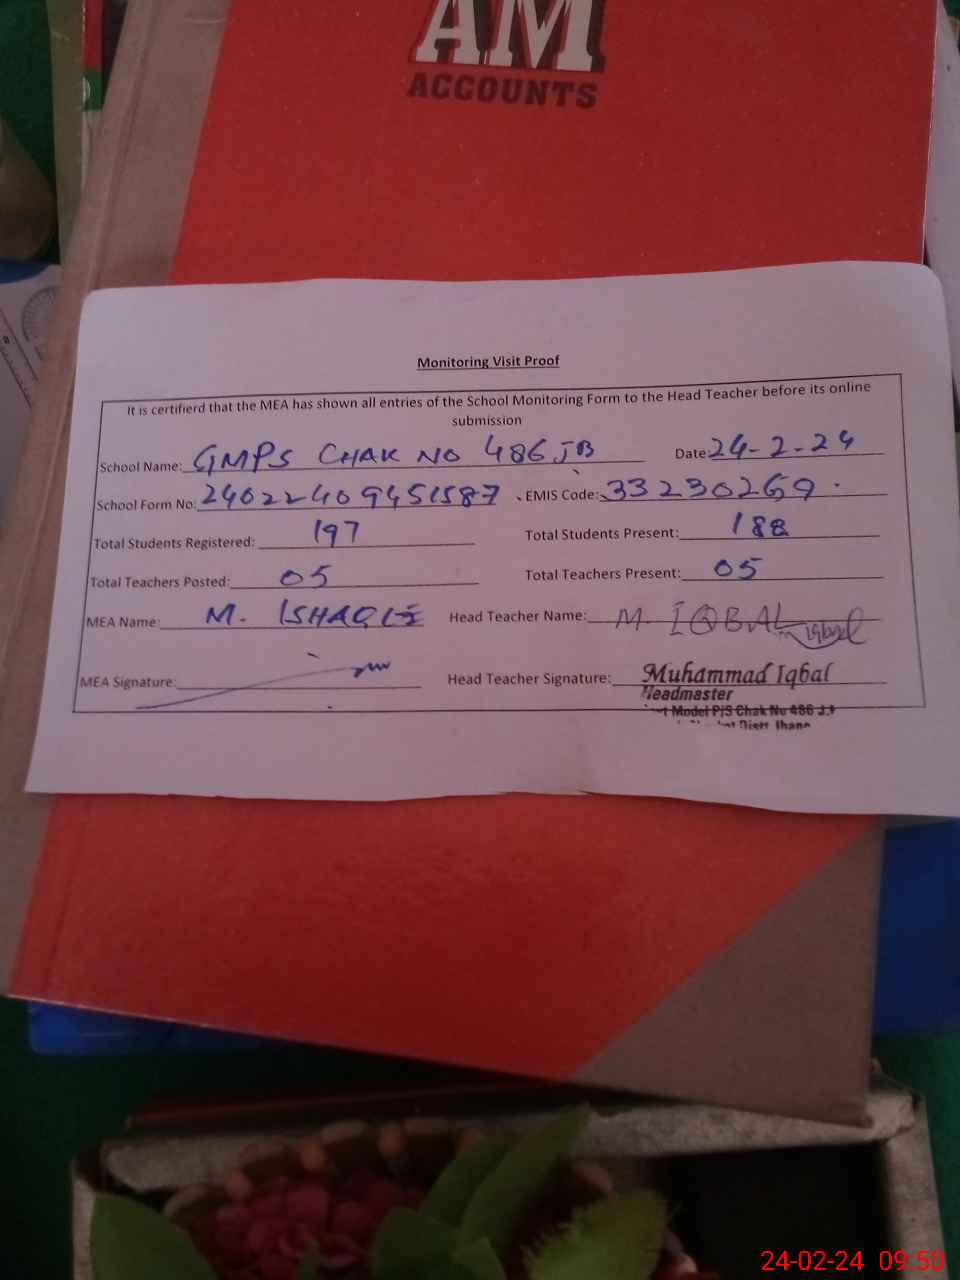 AM
ACCOUNTS
Monitoring Visit Proof
It is certifierd that the MEA has shown all entries of the School Monitoring Form to the Head Teacher before its online
submission
School Name: GMPS CHAK NO 486 JB Date: 24-2-24
School Form No: 24022409451587 EMIS Code: 33230269
Total Students Registered: 197 Total Students Present: 188
Total Teachers Posted: 05 Total Teachers Present: 05
MEA Name: M. ISHAQ Head Teacher Name: M. IQBAL
MEA Signature: Head Teacher Signature: Muhammad Iqbal
Headmaster
Model P/S Chak No 486 J.B
24-02-24 09:50